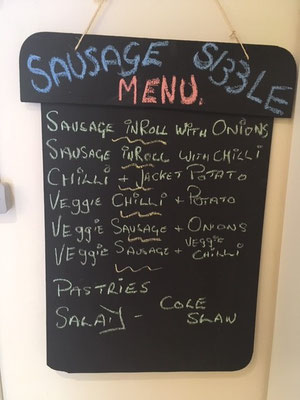 SAUSAGE SIZZLE
MENU.
SAUSAGE iNROLL WiTH ONiONS
SAUSAGE iNROLL WiTH CHiLLi
CHiLLi + JACKET POTATO
VEGGiE CHiLLi + POTATO
VEGGiE SAUSAGE + ONiONS
VEGGiE SAUSAGE + VEGGiE CHiLLi
PASTRiES
SALAD - COLE
SLAW